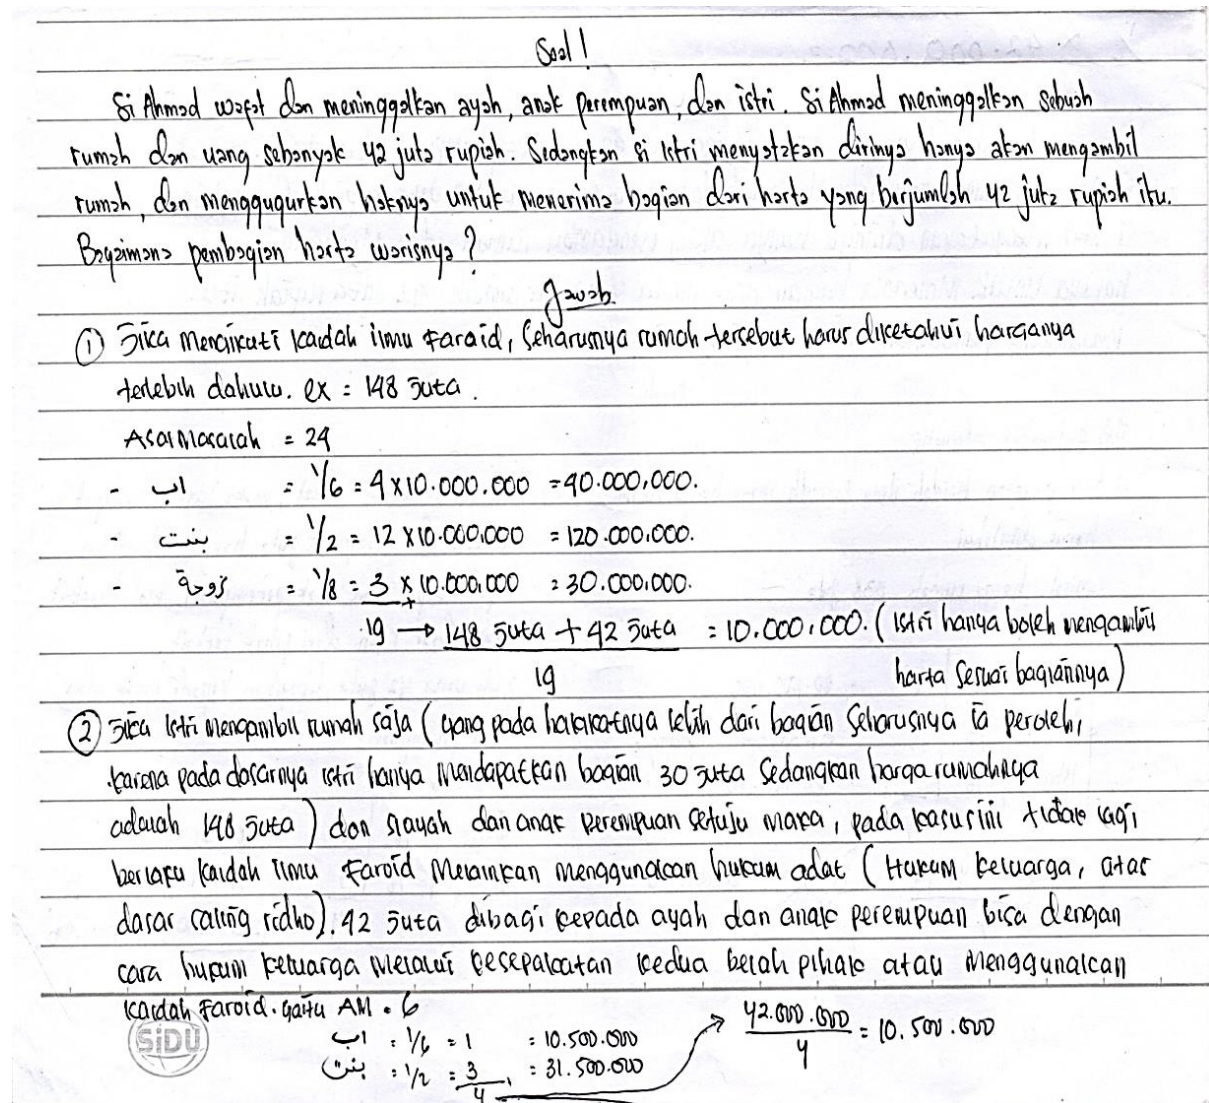 Soal !
Si Ahmad wafat dan meninggalkan ayah, anak perempuan, dan istri. Si Ahmad meninggalkan sebuah
rumah dan uang sebanyak 42 juta rupiah. Sedangkan si istri menyatakan dirinya hanya akan mengambil
rumah, dan menggugurkan haknya untuk menerima bagian dari harta yang berjumlah 42 juta rupiah itu.
Bagaimana pembagian harta warisnya ?
Jawab.
① Jika mengikuti kaidah ilmu Faraid, Seharusnya rumah tersebut harus diketahui harganya
terlebih dahulu. ex = 148 Juta.
Asal Masalah = 24
- اب = 1/6 = 4 x 10.000.000 = 40.000.000.
- بنت = 1/2 = 12 x 10.000.000 = 120.000.000.
- زوجة = 1/8 = 3 x 10.000.000 = 30.000.000.
+
19 → 148 Juta + 42 Juta = 10.000.000. ( istri hanya boleh mengambil
19 harta sesuai bagiannya )
② Jika istri mengambil rumah saja ( yang pada hakikatnya lebih dari bagian seharusnya ia peroleh,
karena pada dasarnya istri hanya mendapatkan bagian 30 Juta sedangkan harga rumahnya
adalah 148 Juta ) dan si ayah dan anak perempuan setuju maka, pada kasus ini tidak lagi
berlaku kaidah ilmu Faroid melainkan menggunakan hukum adat ( Hukum keluarga, atas
dasar saling ridho). 42 Juta dibagi kepada ayah dan anak perempuan bisa dengan
cara hukum keluarga melalui kesepakatan kedua belah pihak atau menggunakan
kaidah Faroid. yaitu AM = 6
اب = 1/6 = 1 = 10.500.000
بنت = 1/2 = 3 = 31.500.000
4 → 42.000.000 = 10.500.000
4
SiDU